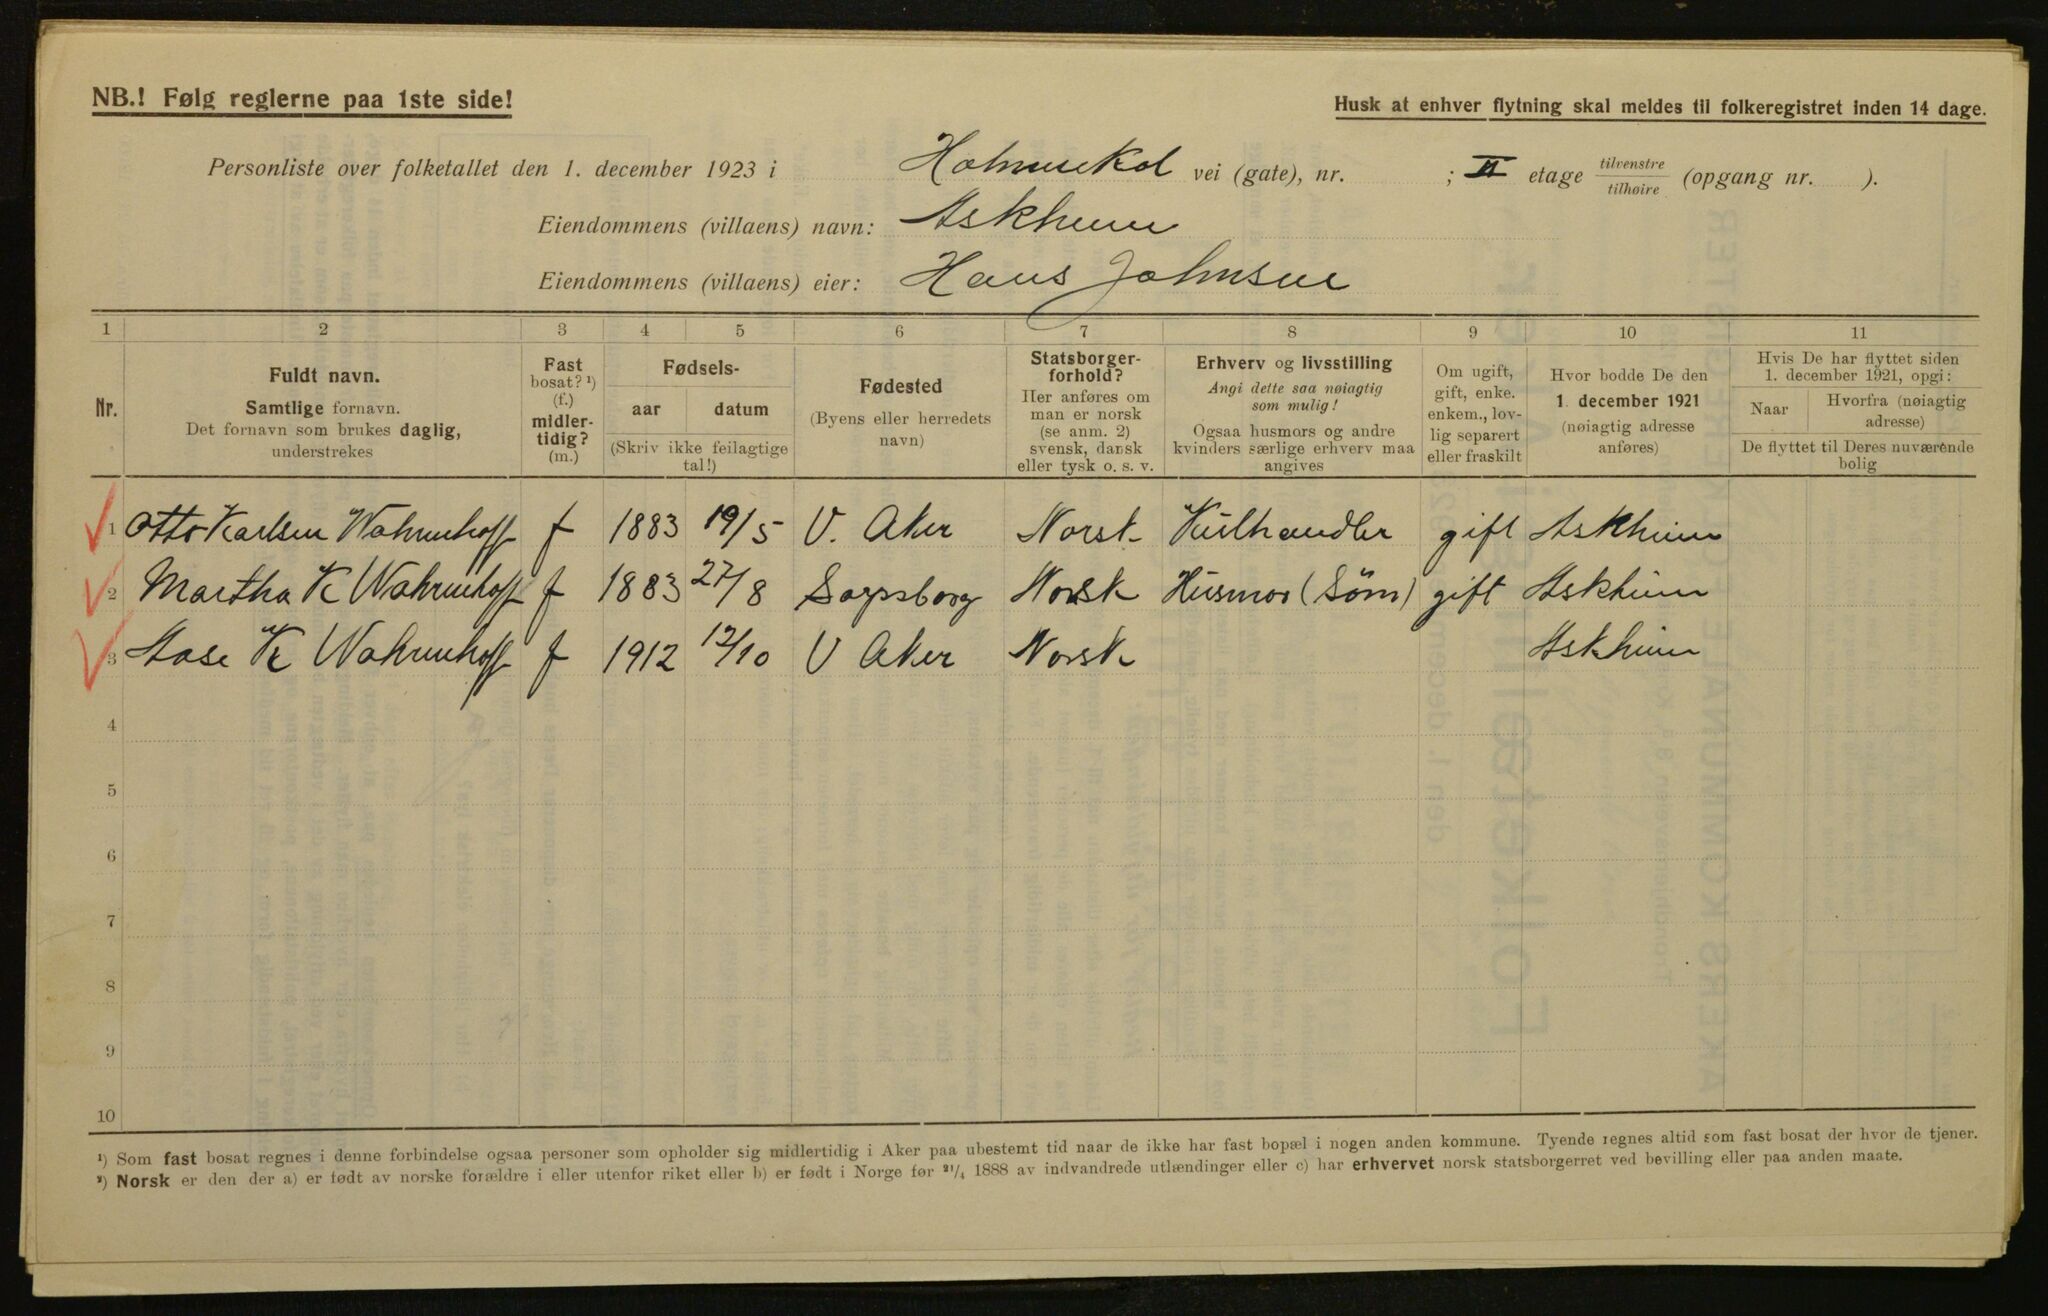 NB.! Følg reglerne paa 1ste side!
Husk at enhver flytning skal meldes til folkeregistret inden 14 dage.
Personliste over folketallet den 1. december 1923 i Holmenkol vei (gate), nr. ; II etage tilvenstre tilhøire (opgang nr. ).
Eiendommens (villaens) navn: Askheim
Eiendommens (villaens) eier: Hans Johnsen
1 2 3 4 5 6 7 8 9 10 11
Nr.
Fuldt navn.
Samtlige fornavn.
Det fornavn som brukes daglig,
understrekes
Fast
bosat? ¹)
(f.)
midler-
tidig?
(m.)
Fødsels-
aar datum
(Skriv ikke feilagtige
tal!)
Fødested
(Byens eller herredets
navn)
Statsborger-
forhold?
Her anføres om
man er norsk
(se anm. 2)
svensk, dansk
eller tysk o. s. v.
Erhverv og livsstilling
Angi dette saa nøiagtig
som mulig!
Ogsaa husmors og andre
kvinders særlige erhverv maa
angives
Om ugift,
gift, enke.
enkem., lov-
lig separert
eller fraskilt
Hvor bodde De den
1. december 1921
(nøiagtig adresse
anføres)
Hvis De har flyttet siden
1. december 1921, opgi:
Naar
Hvorfra (nøiagtig
adresse)
De flyttet til Deres nuværende
bolig
1 Otto Karlsen Wahrenhoff f 1883 19/5 V. Aker Norsk Kulhandler gift Askheim
2 Martha K Wahrenhoff f 1883 27/8 Sarpsborg Norsk Husmor (Søm) gift Askheim
3 Aase K Wahrenhoff f 1912 12/10 V Aker Norsk Askheim
4
5
6
7
8
9
10
¹) Som fast bosat regnes i denne forbindelse ogsaa personer som opholder sig midlertidig i Aker paa ubestemt tid naar de ikke har fast bopæl i nogen anden kommune. Tyende regnes altid som fast bosat der hvor de tjener.
²) Norsk er den der a) er født av norske forældre i eller utenfor riket eller b) er født i Norge før ²¹/₄ 1888 av indvandrede utlændinger eller c) har erhvervet norsk statsborgerret ved bevilling eller paa anden maate.